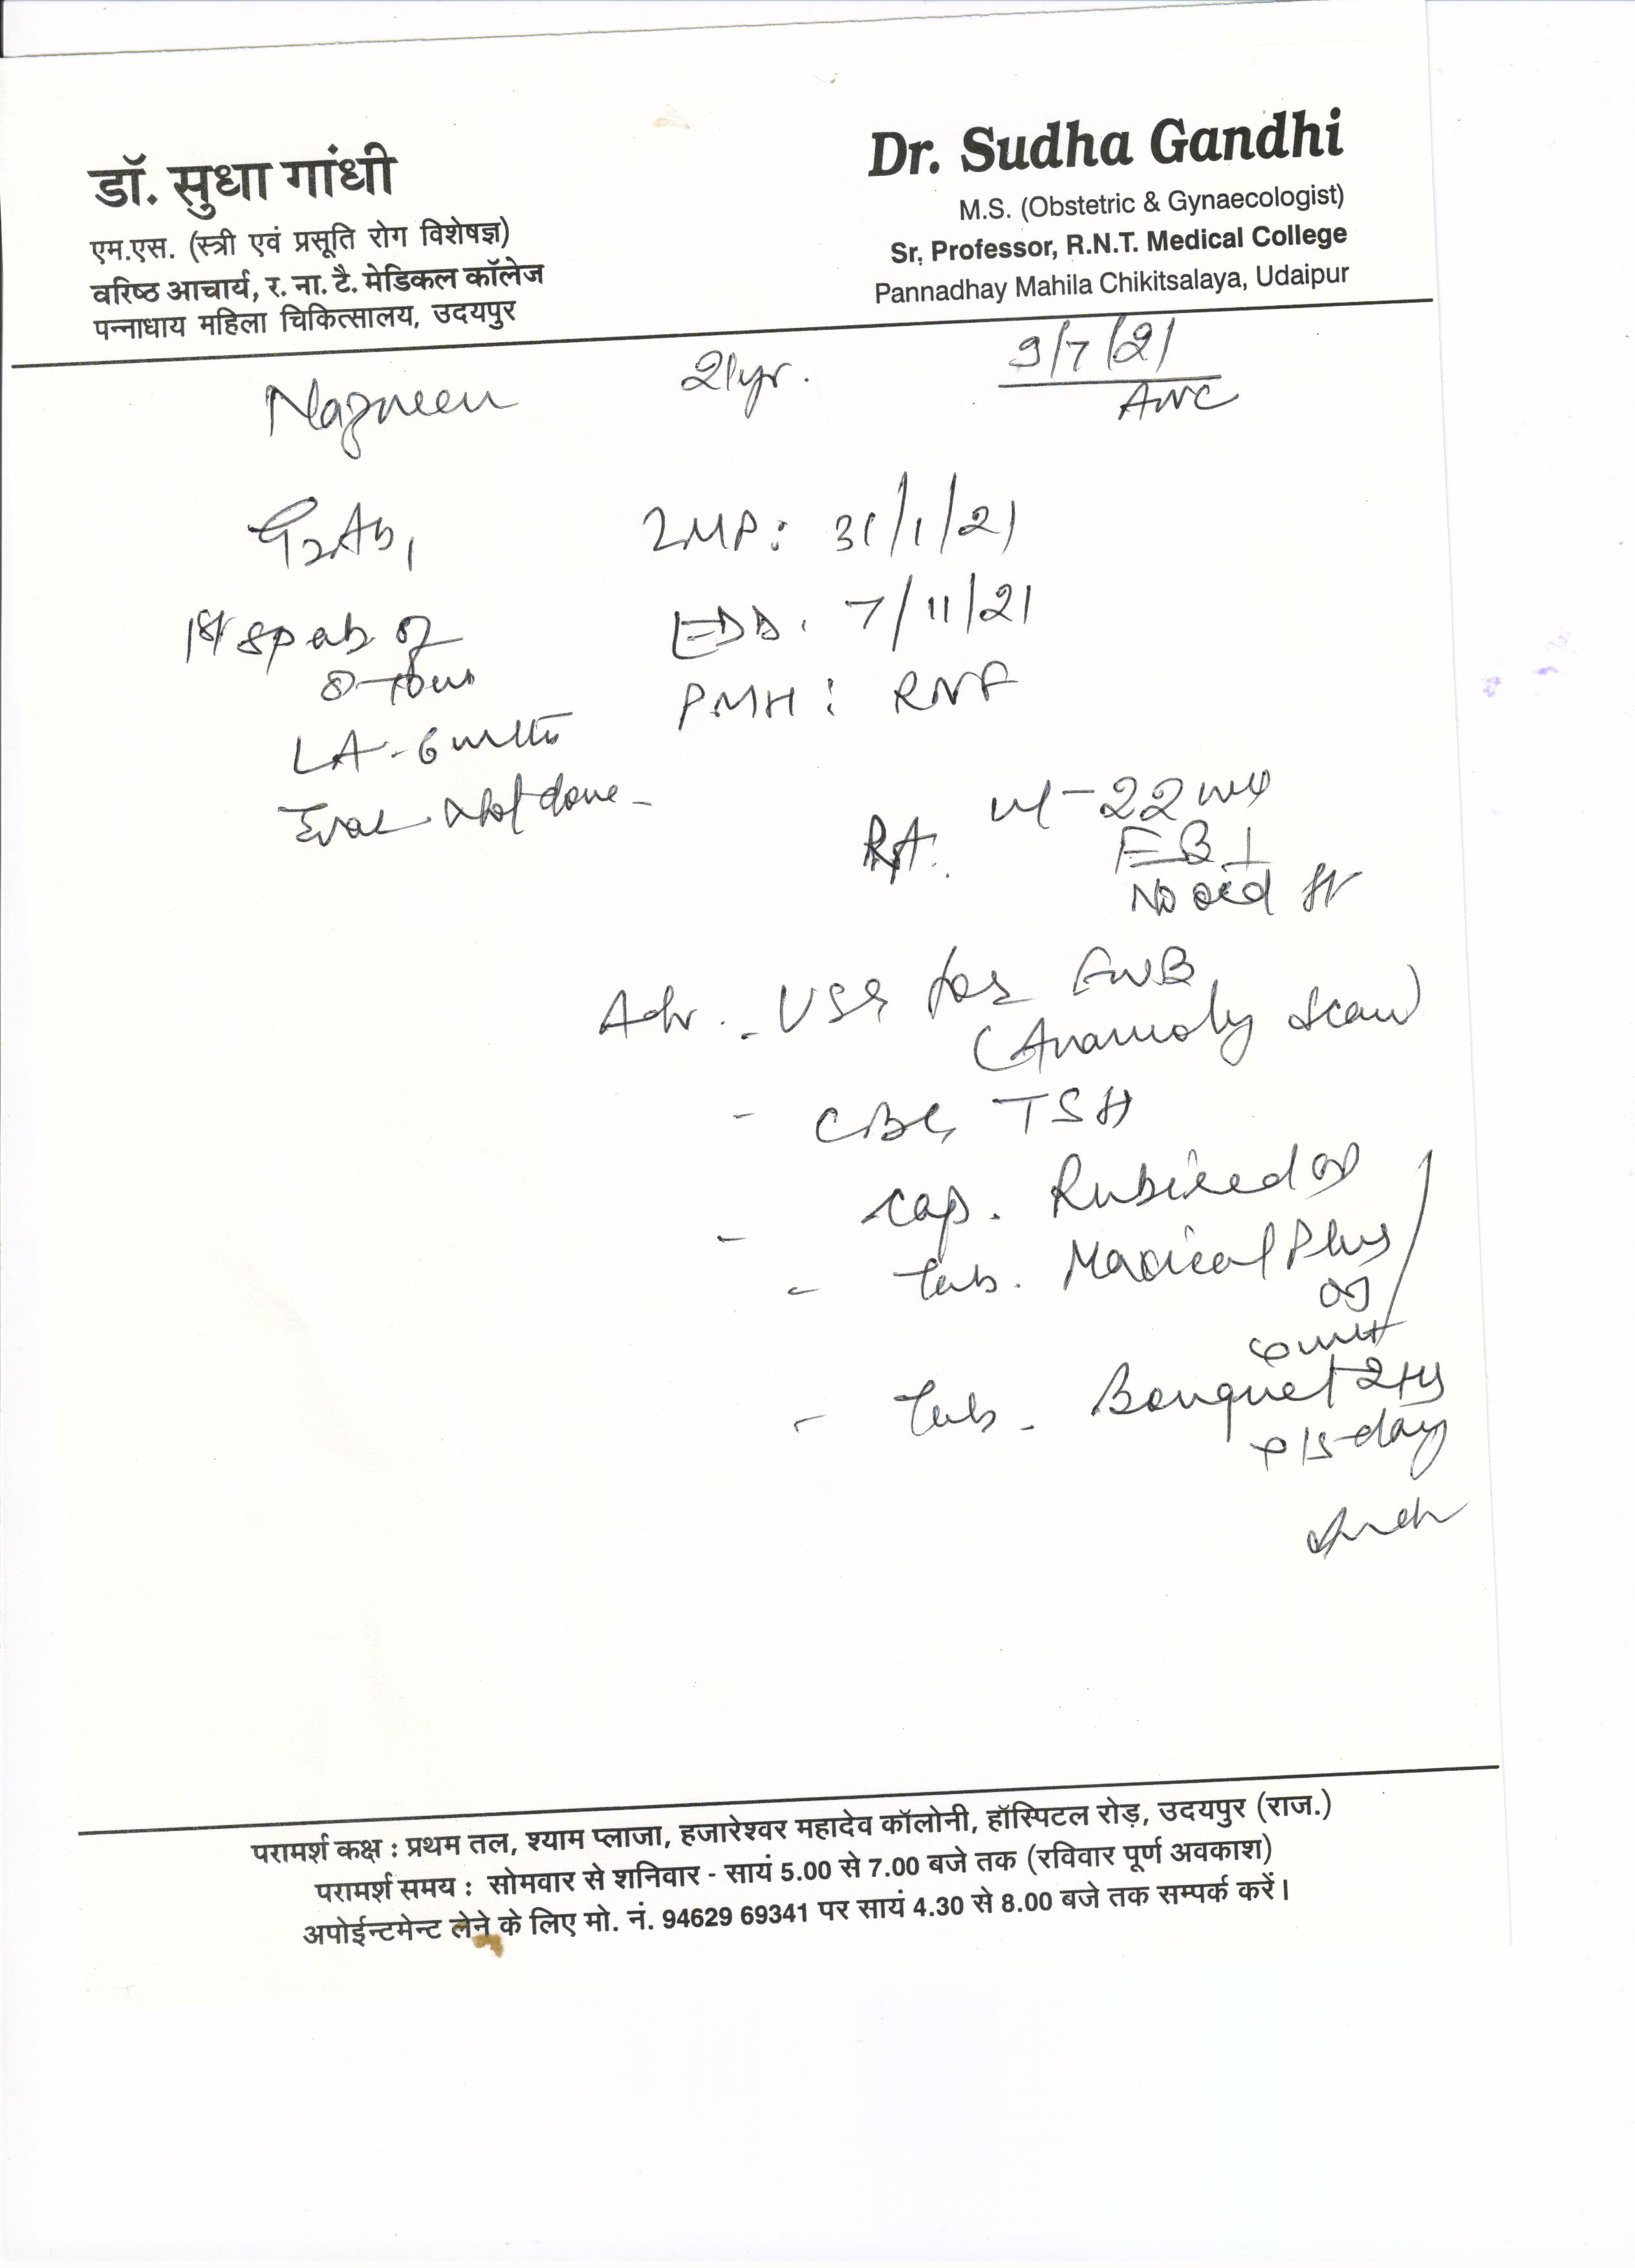 डॉ. सुधा गांधी
एम.एस. (स्त्री एवं प्रसूति रोग विशेषज्ञ)
वरिष्ठ आचार्य, र. ना. टै. मेडिकल कॉलेज
पन्नाधाय महिला चिकित्सालय, उदयपुर
Dr. Sudha Gandhi
M.S. (Obstetric & Gynaecologist)
Sr. Professor, R.N.T. Medical College
Pannadhay Mahila Chikitsalaya, Udaipur
Nazneen 21yr. 9/7/21
ANC
G2Ab1
LMP: 31/1/21
1st sp ab of
EDD. 7/11/21
PMH: RNF
LA - 6 mths
Not done -
ut - 22 wk
P/A.
FB
No
Adv. - USG for FWB
(Anamoly Scan)
- CBC, TSH
- Cap. Rubired OD
- Tab. Maxical Plus
OD
- Tab. Bonquet
15 day
परामर्श कक्ष : प्रथम तल, श्याम प्लाजा, हजारेश्वर महादेव कॉलोनी, हॉस्पिटल रोड़, उदयपुर (राज.)
परामर्श समय : सोमवार से शनिवार - सायं 5.00 से 7.00 बजे तक (रविवार पूर्ण अवकाश)
अपोईन्टमेन्ट लेने के लिए मो. नं. 94629 69341 पर सायं 4.30 से 8.00 बजे तक सम्पर्क करें।